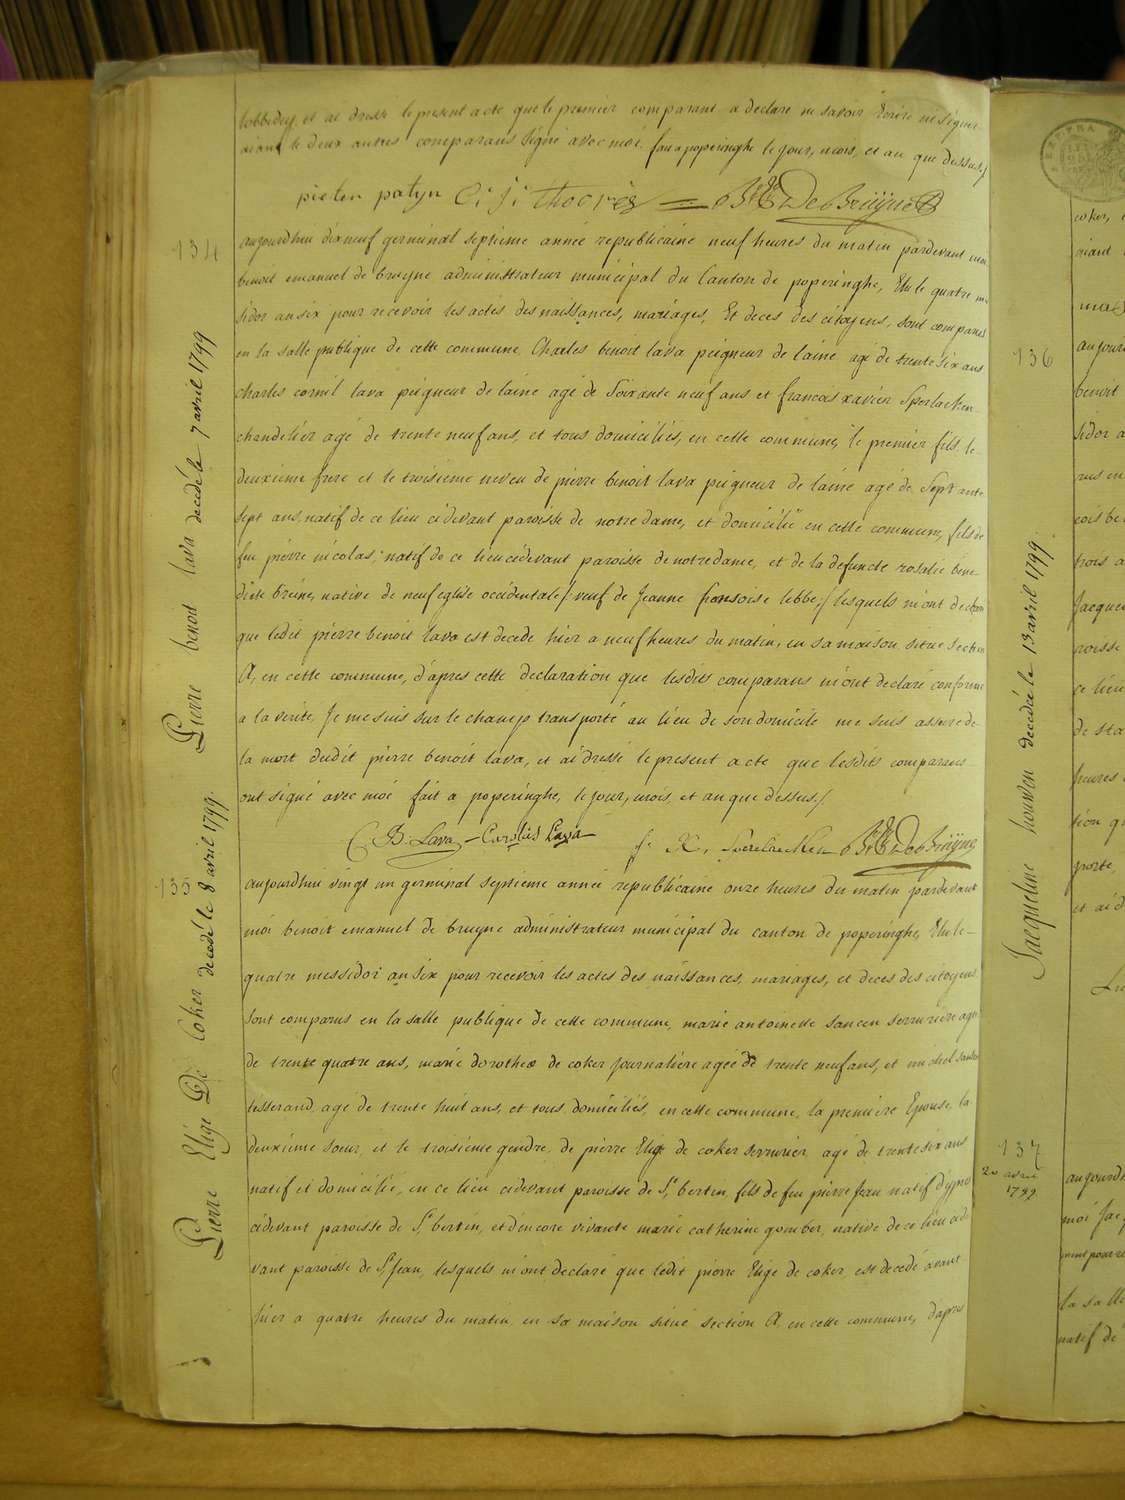 lobbedey, et ai dressé le present acte que le premier comparant a declaré ne savoir Ecrire ni signer
aiant le deux autres comparans signé avec moi. fait a poperinghe le jour, mois, et an que dessus./
pieter patyn C: J: thoores BE DeBruÿne
134
aujourdhui dixneuf germinal septieme année republicaine neuf heures du matin pardevant moi
benoit emanuel de bruyne administrateur municipal du Canton de poperinghe, Elu le quatre mes
sidor an six pour recevoir les actes des naissances, mariages, Et deces des citoyens, sont comparus
en la salle publique de cette commune Charles benoit lava peigneur de laine agé de trente six ans
charles cornil lava peigneur de laine agé de Soixante neuf ans et francois xavier Sperlacken
chandelier agé de trente neuf ans, et tous domiciliés, en cette commune, le premier fils, le
deuxieme frere et le troisieme neveu de pierre benoit lava peigneur de laine agé de Septante
sept ans, natif de ce lieu cidevant paroisse de notre dame, et domicilié en cette commune, fils de
feu pierre nicolas, natif de ce lieu cidevant paroisse de notre dame, et de la defuncte rosalie bene
dicte brune, native de neuf eglise occidentale /: veuf de Jeanne fransoise lebbe:/ lesquels m'ont declaré
que ledit pierre benoit lava est decedé hier a neuf heures du matin, en sa maison situé section
A, en cette commune, d'apres cette declaration que lesdits comparans m'ont declaré conforme
a la verité, Je me suis sur le champ transporté au lieu de son domicile me suis assuré de
la mort dudit pierre benoit lava, et ai dressé le present acte que lesdits comparans
ont signé avec moi fait a poperinghe, le jour, mois, et an que dessus./
C B: Lava Carolus Lava f. X. Sperlaecken BE DeBruÿne
Pierre benoit lava decedé le 7 avril 1799
135
aujourdhui vingt un germinal septieme année republicaine onze heures du matin pardevant
moi benoit emanuel de bruyne administrateur municipal du canton de poperinghe, Elu le
quatre messidor an six pour recevoir les actes des naissances, mariages, et deces des citoyens
sont comparus en la salle publique de cette commune, marie antoinette sansen serruriere agée
de trente quatre ans, marie dorothee de coker journaliere agée de trente neuf ans, et michel sansen
tisserand, agé de trente huit ans, et tous domiciliés, en cette commune, la premiere Epouse, la
deuxieme soeur et le troisieme gendre, de pierre Elige de coker serrurier, agé de trente six ans
natif et domicilié, en ce lieu cidevant paroisse de St bertin, fils de feu pierre Jean natif d'ypres
cidevant paroisse de St bertin, et d'encore vivante marie catherine gomber, native de ce lieu cide
vant paroisse de St Jean, lesquels m'ont declaré que ledit pierre Elige de coker, est decedé avant
hier a quatre heures du matin, en sa maison situé section A, en cette commune, d'apres
Pierre Elige De Coker decedé le 8 avril 1799.
coker,
136
aujour
benoit
sidor a
rus en
cois be
trois a
Jacque
roisse
ce lieu
de sta
heures
tion q
porte,
et ai d
Jacqueline houven decedé le 13 avril 1799.
137
20 avril
1799
aujourdh
moi Jac
ment pour re
la salle
natif de